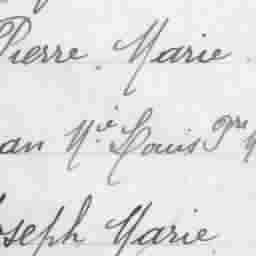 Pierre Marie
an M.ie Louis Pre
oseph Marie